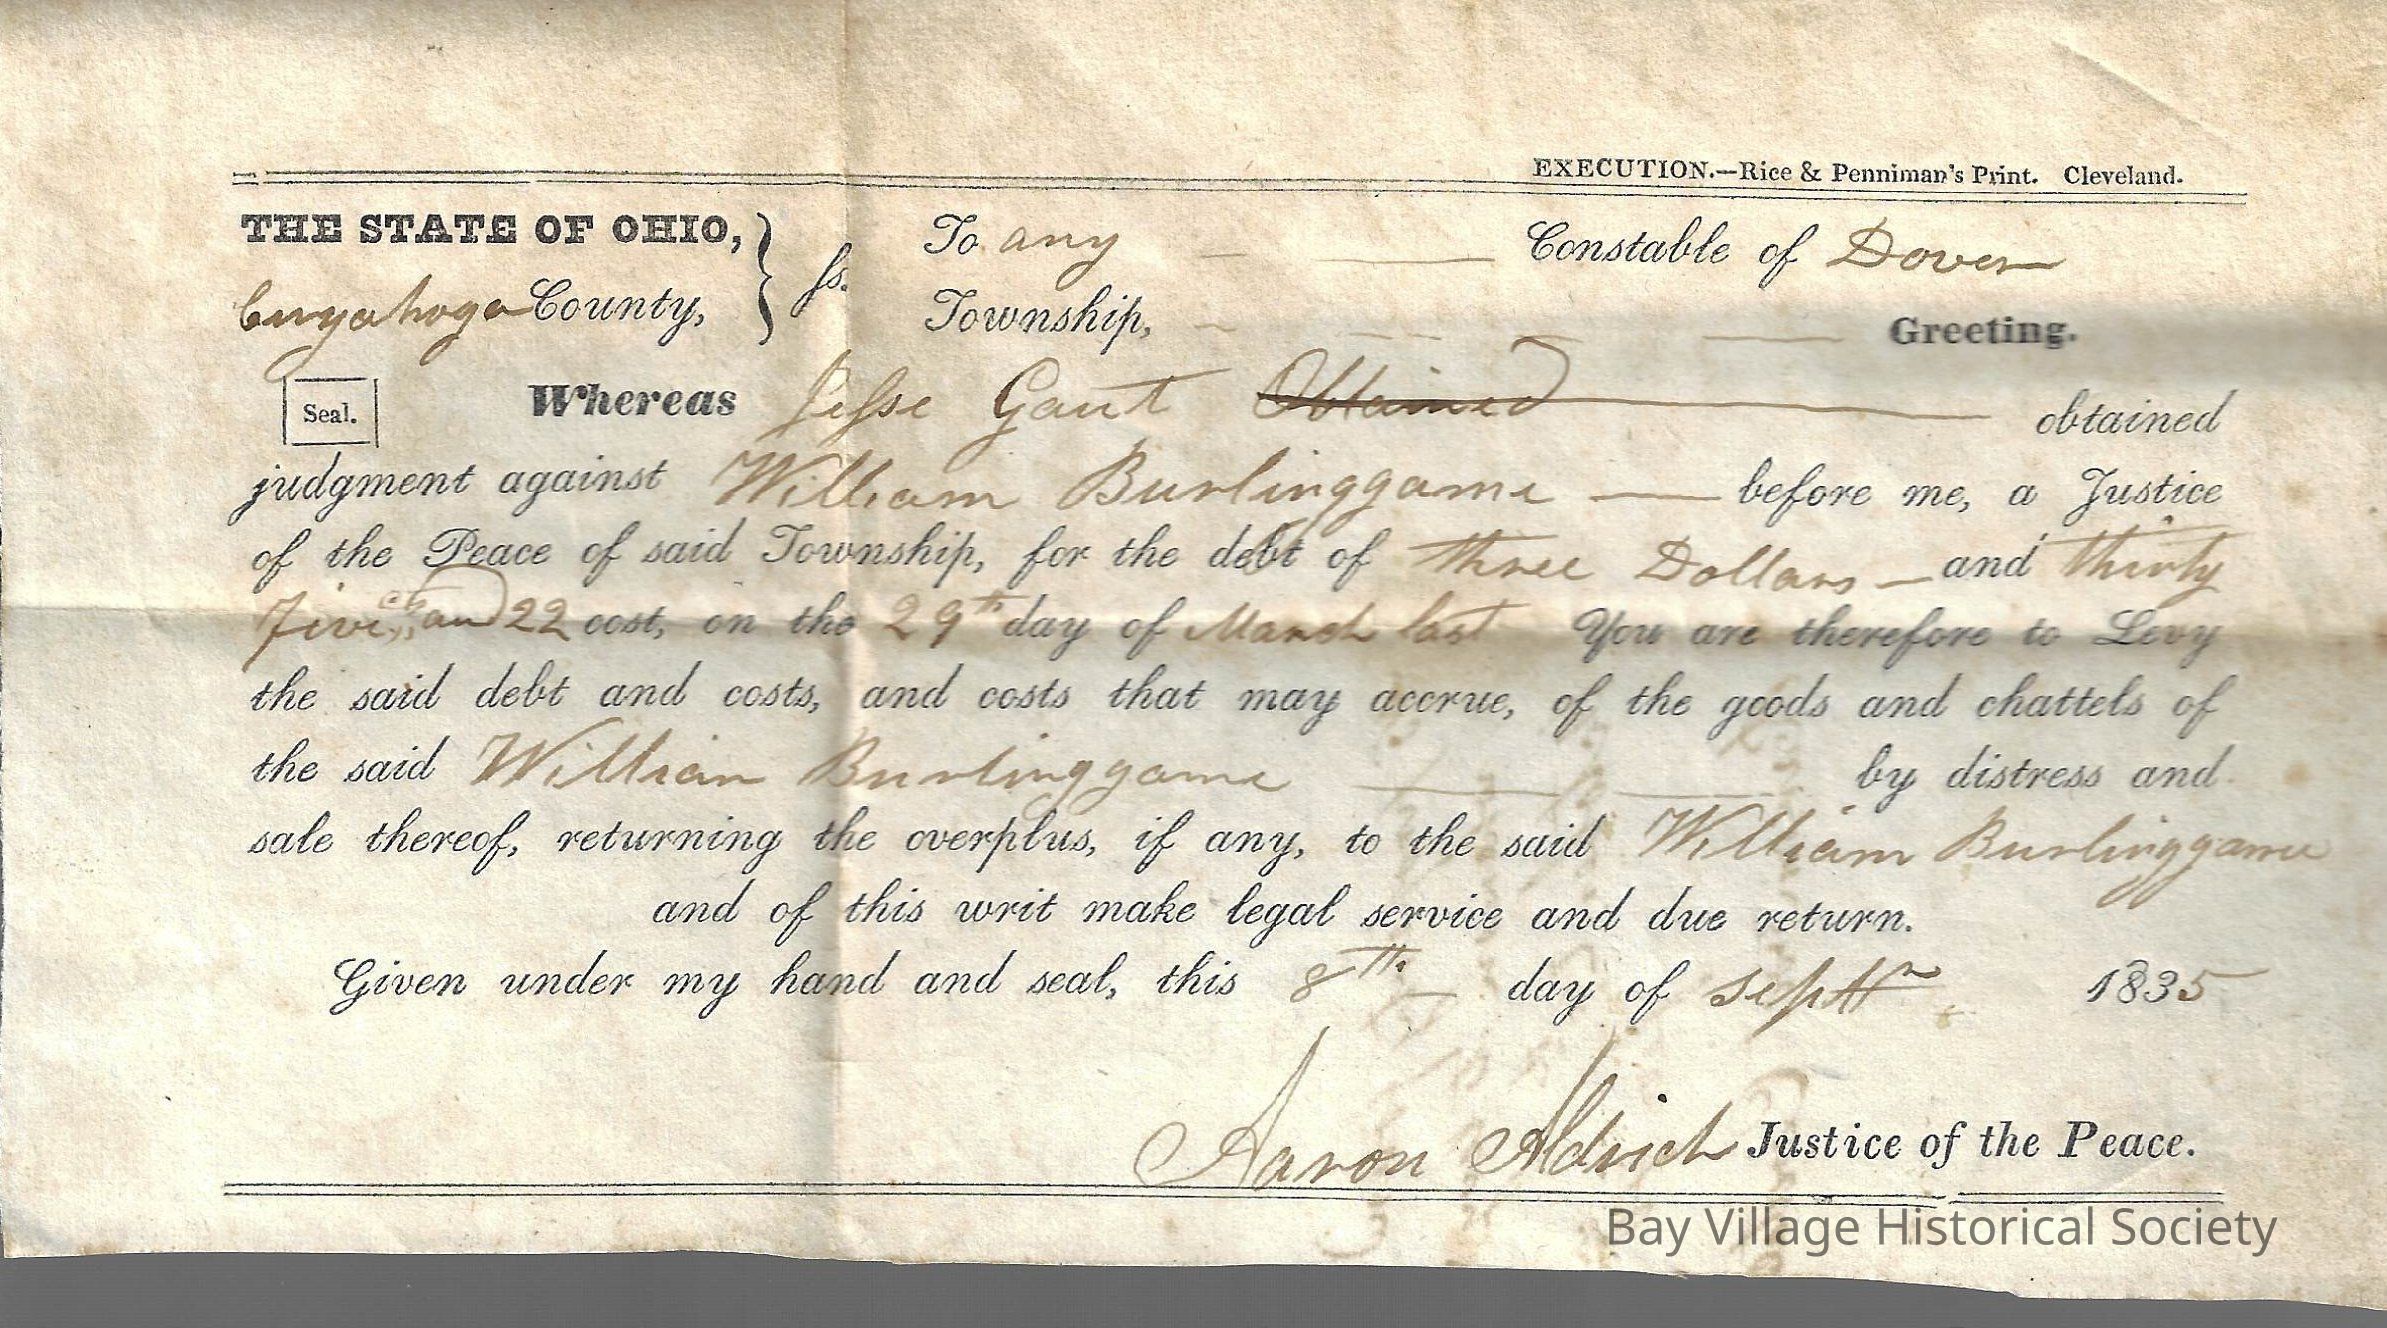 EXECUTION.—Rice & Penniman's Print. Cleveland.
THE STATE OF OHIO, } ss. To any Constable of Dover
Cuyahoga County, Township, Greeting.
Seal. Whereas Jesse Gaut Obtained obtained
judgment against William Burlinggame before me, a Justice
of the Peace of said Township, for the debt of three Dollars and thirty
five cts and 22 cost, on the 29th day of March last You are therefore to Levy
the said debt and costs, and costs that may accrue, of the goods and chattels of
the said William Burlinggame by distress and
sale thereof, returning the overplus, if any, to the said William Burlinggame
and of this writ make legal service and due return.
Given under my hand and seal, this 8th day of Septr 1835
Aaron Aldrich Justice of the Peace.
Bay Village Historical Society